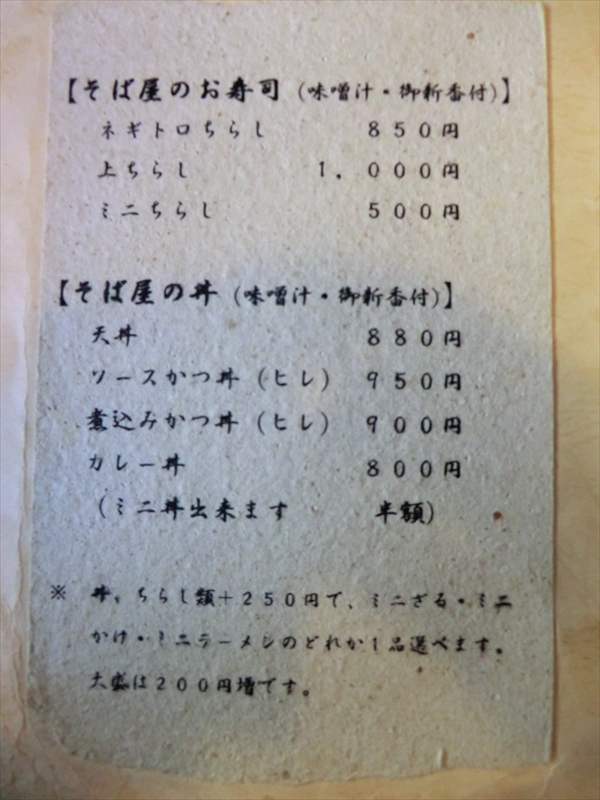 【そば屋のお寿司（味噌汁・御新香付）】
ネギトロちらし　８５０円
上ちらし　１，０００円
ミニちらし　５００円
【そば屋の丼（味噌汁・御新香付）】
天丼　８８０円
ソースかつ丼（ヒレ）　９５０円
煮込みかつ丼（ヒレ）　９００円
カレー丼　８００円
（ミニ丼出来ます　半額）
※　丼、ちらし類＋２５０円で、ミニざる・ミニ
かけ・ミニラーメンのどれか１品選べます。
大盛は２００円増です。